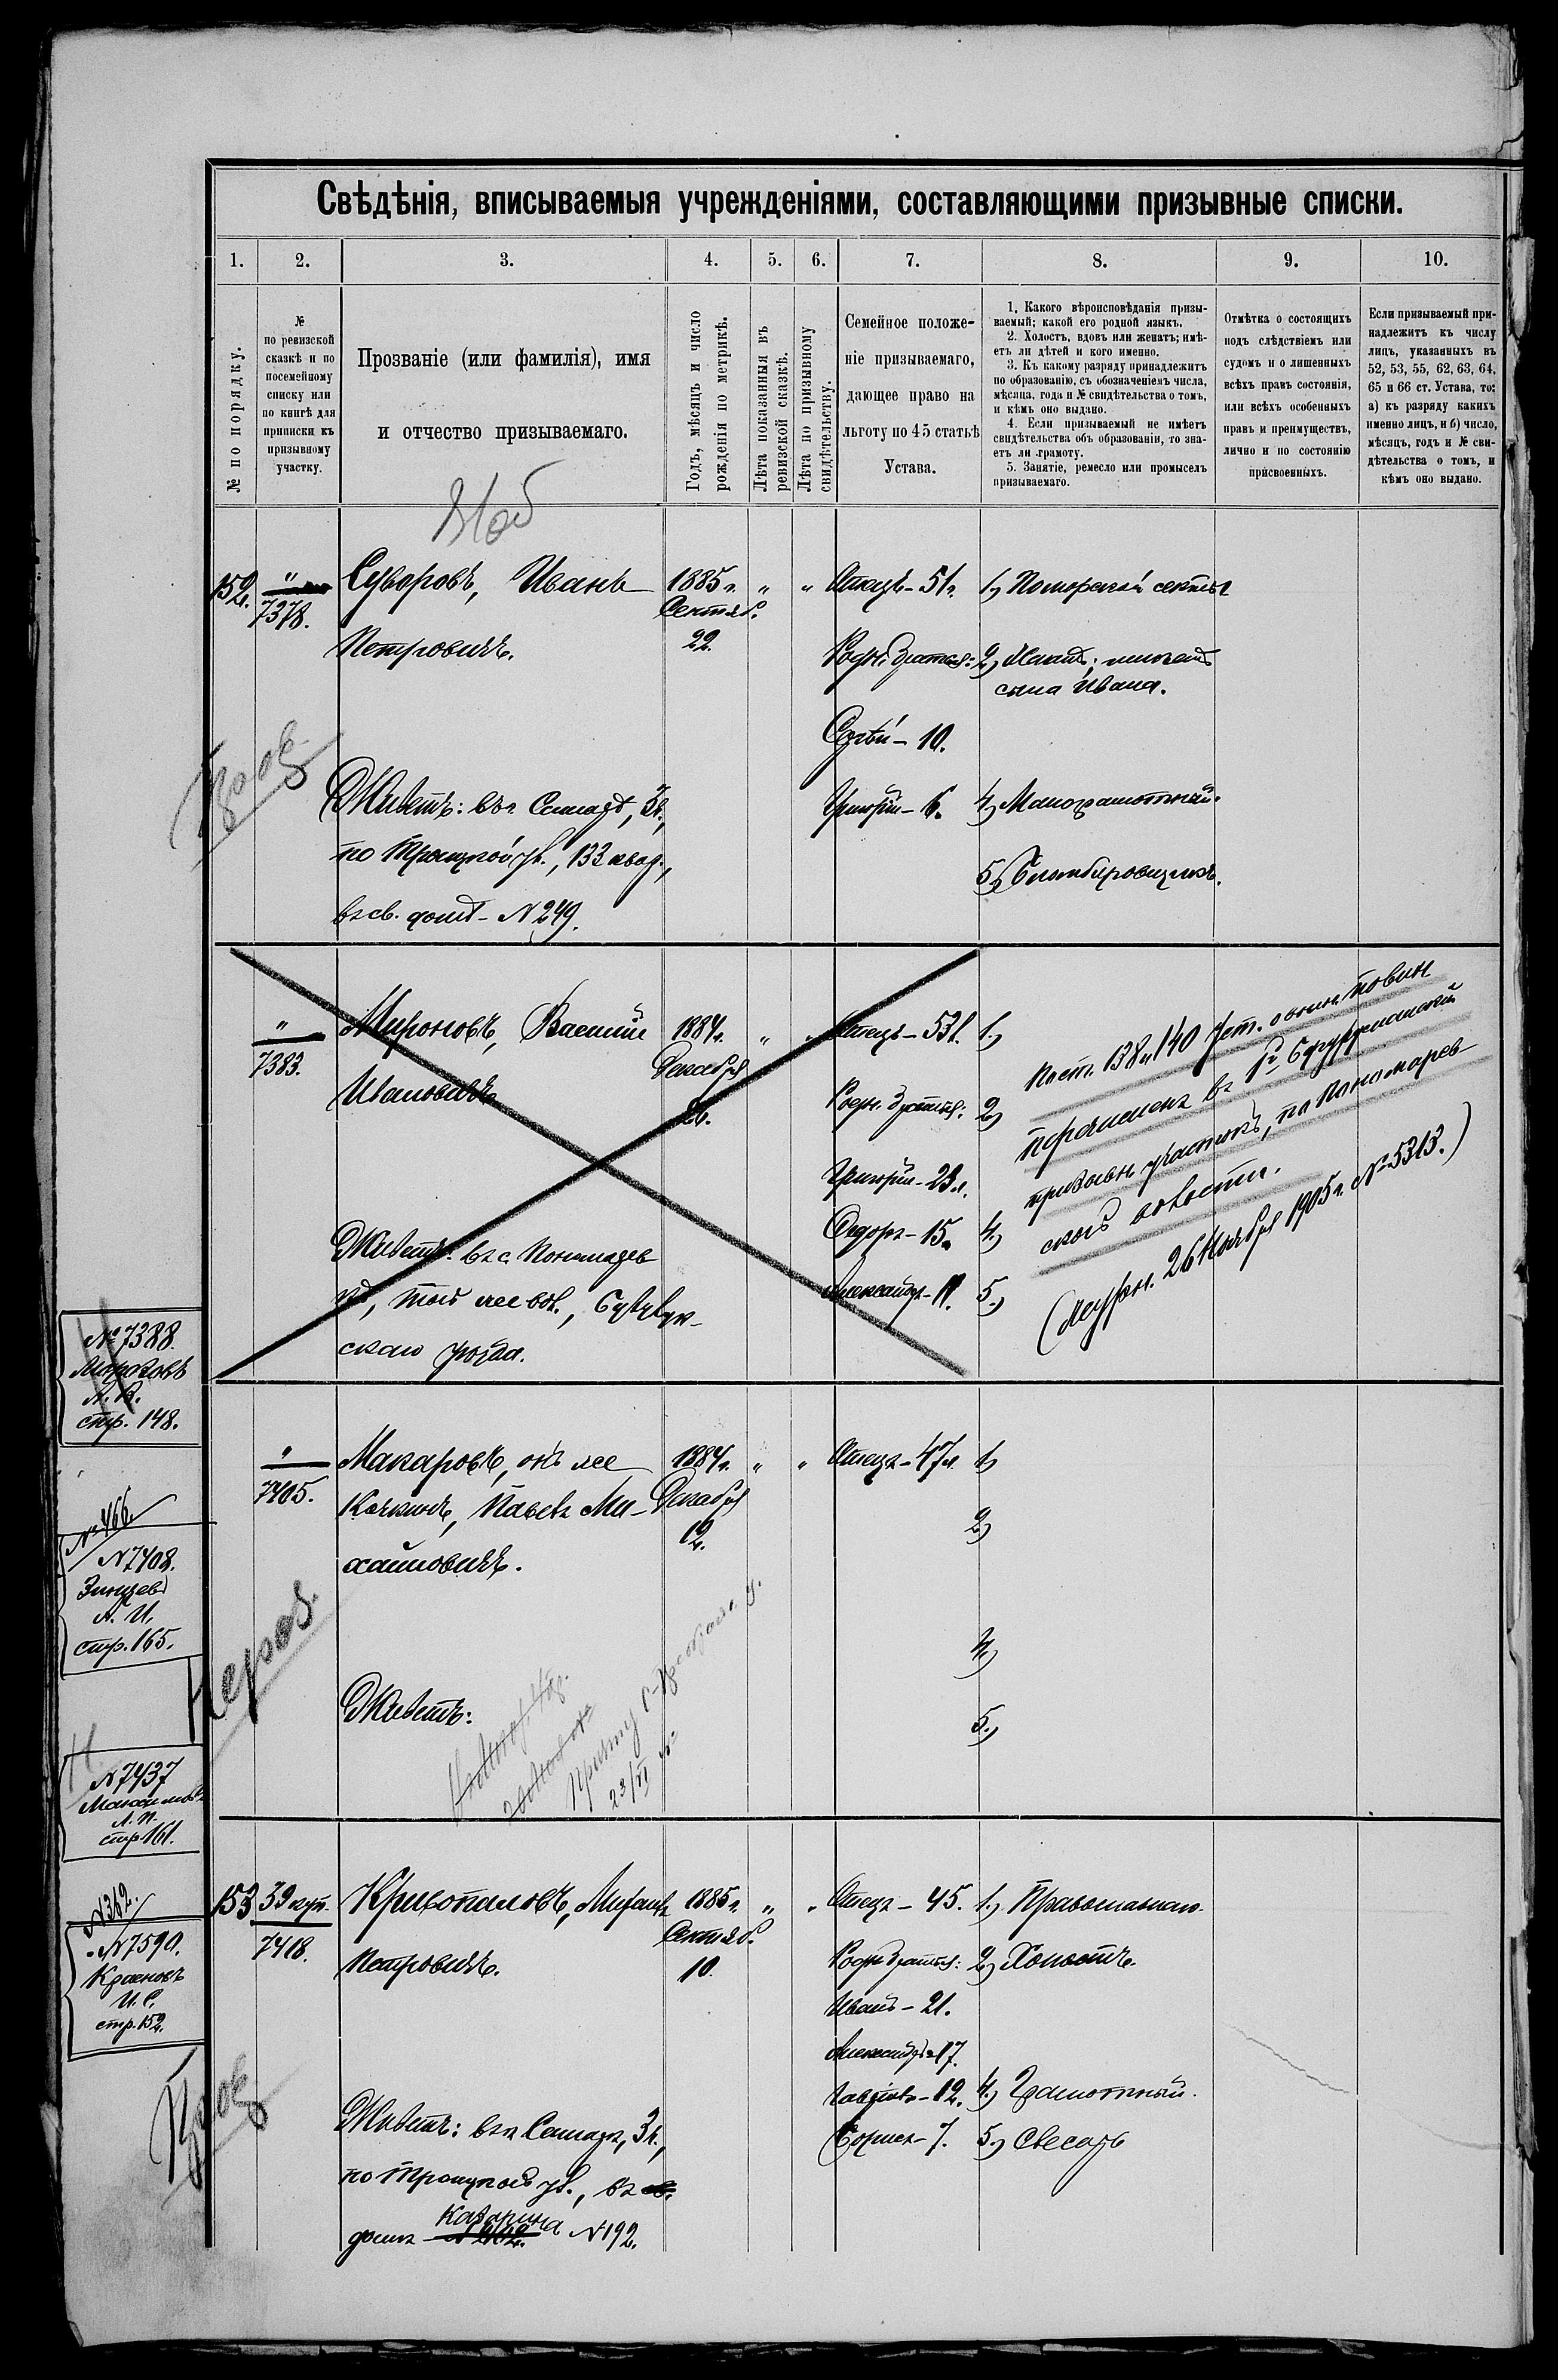 Свѣдѣнія, вписываемыя учрежденіями, составляющими призывные списки.
1. 2. 3. 4. 5. 6. 7. 8. 9. 10.
№ по порядку.
№
по ревизской
сказкѣ и по
посемейному
списку или
по книгѣ для
приписки къ
призывному
участку.
Прозваніе (или фамилія), имя
и отчество призываемаго.
Годъ, мѣсяцъ и число
рожденія по метрикѣ.
Лѣта показанныя въ
ревизской сказкѣ.
Лѣта по призывному
свидѣтельству.
Семейное положе-
ніе призываемаго,
дающее право на
льготу по 45 статьѣ
Устава.
1. Какого вѣроисповѣданія призы-
ваемый; какой его родной языкъ.
2. Холостъ, вдовъ или женатъ; имѣ-
етъ ли дѣтей и кого именно.
3. Къ какому разряду принадлежитъ
по образованію, съ обозначеніемъ числа,
мѣсяца, года и № свидѣтельства о томъ,
и кѣмъ оно выдано.
4. Если призываемый не имѣетъ
свидѣтельства объ образованіи, то зна-
етъ ли грамоту.
5. Занятіе, ремесло или промыселъ
призываемаго.
Отмѣтка о состоящихъ
подъ слѣдствіемъ или
судомъ и о лишенныхъ
всѣхъ правъ состоянія,
или всѣхъ особенныхъ
правъ и преимуществъ,
лично и по состоянію
присвоенныхъ.
Если призываемый при-
надлежитъ къ числу
лицъ, указанныхъ въ
52, 53, 55, 62, 63, 64,
65 и 66 ст. Устава, то:
а) къ разряду какихъ
именно лицъ, и б) число,
мѣсяцъ, годъ и № сви-
дѣтельства о томъ, и
кѣмъ оно выдано.
152. " 7378.
Суворовъ, Иванъ
Петровичъ.
1885 г.
Сентяб.
22.
" "
Отецъ - 51 г.
Родн. братья:
Сергѣй - 10.
Григорій - 6.
1, Поморской секты
2, Женатъ; имѣетъ
сына Ивана.
4, Малограмотный.
5,
Живетъ: въ г. Самарѣ, 3 ч.,
по Троицкой ул., 133 квар.,
въ св. домѣ - № 249.
" 7383.
Мироновъ, Василій
Ивановичъ
1884 г.
Декабря
26.
" "
Отецъ - 53 г.
Родн. братья:
Григорій - 23 л.
Ѳедоръ - 15
Александръ - 11.
1,
2,
4,
5,
По ст. 138 и 140 Уст. о воин. повин.
перечисленъ въ
призывн участокъ, по Пономарев-
ской волости.
(Журн. 26 Ноября 1905 г. № 5313.)
Живетъ: въ с. Пономарев
кѣ, той же вол., Бугурук-
скаго уѣзда.
" 7405.
Макаровъ, онъ же
Качкинъ, Павелъ Ми-
хайловичъ.
1884 г.
Декабря
12.
" "
Отецъ - 47 л.
1,
2,
4,
5,
Живетъ:
153 39 куп.
7418.
Кривопаловъ, Михаилъ
Петровичъ.
1885 г.
Сентяб.
10.
" "
Отецъ - 45.
Родн братья:
Иванъ - 21.
Александръ - 17.
Гавріилъ - 12.
Борисъ - 7.
1, Православнаго.
2, Холостъ.
4, Грамотный.
5, Слесарь
Живетъ: въ г. Самарѣ, 3 ч.,
по Троицкой ул., въ св.
домѣ Казарина № 192.
№ 7388.
Морозовъ
А. В.
стр. 148.
№ 466.
№ 7408.
А. И.
стр. 165.
№ 7437
А. П.
стр 161.
№ 342.
№ 7590.
Красновъ
И. С.
стр. 152.